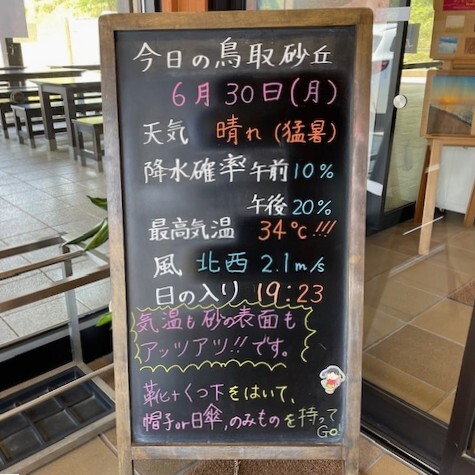 今日の鳥取砂丘
6月30日(月)
天気 晴れ(猛暑)
降水確率 午前10%
午後20%
最高気温 34℃!!!
風 北西 2.1m/s
日の入り 19:23
気温も砂の表面も
アッツアツ!!です。
靴+くつ下をはいて、
帽子or日傘,のみものを持って
Go!